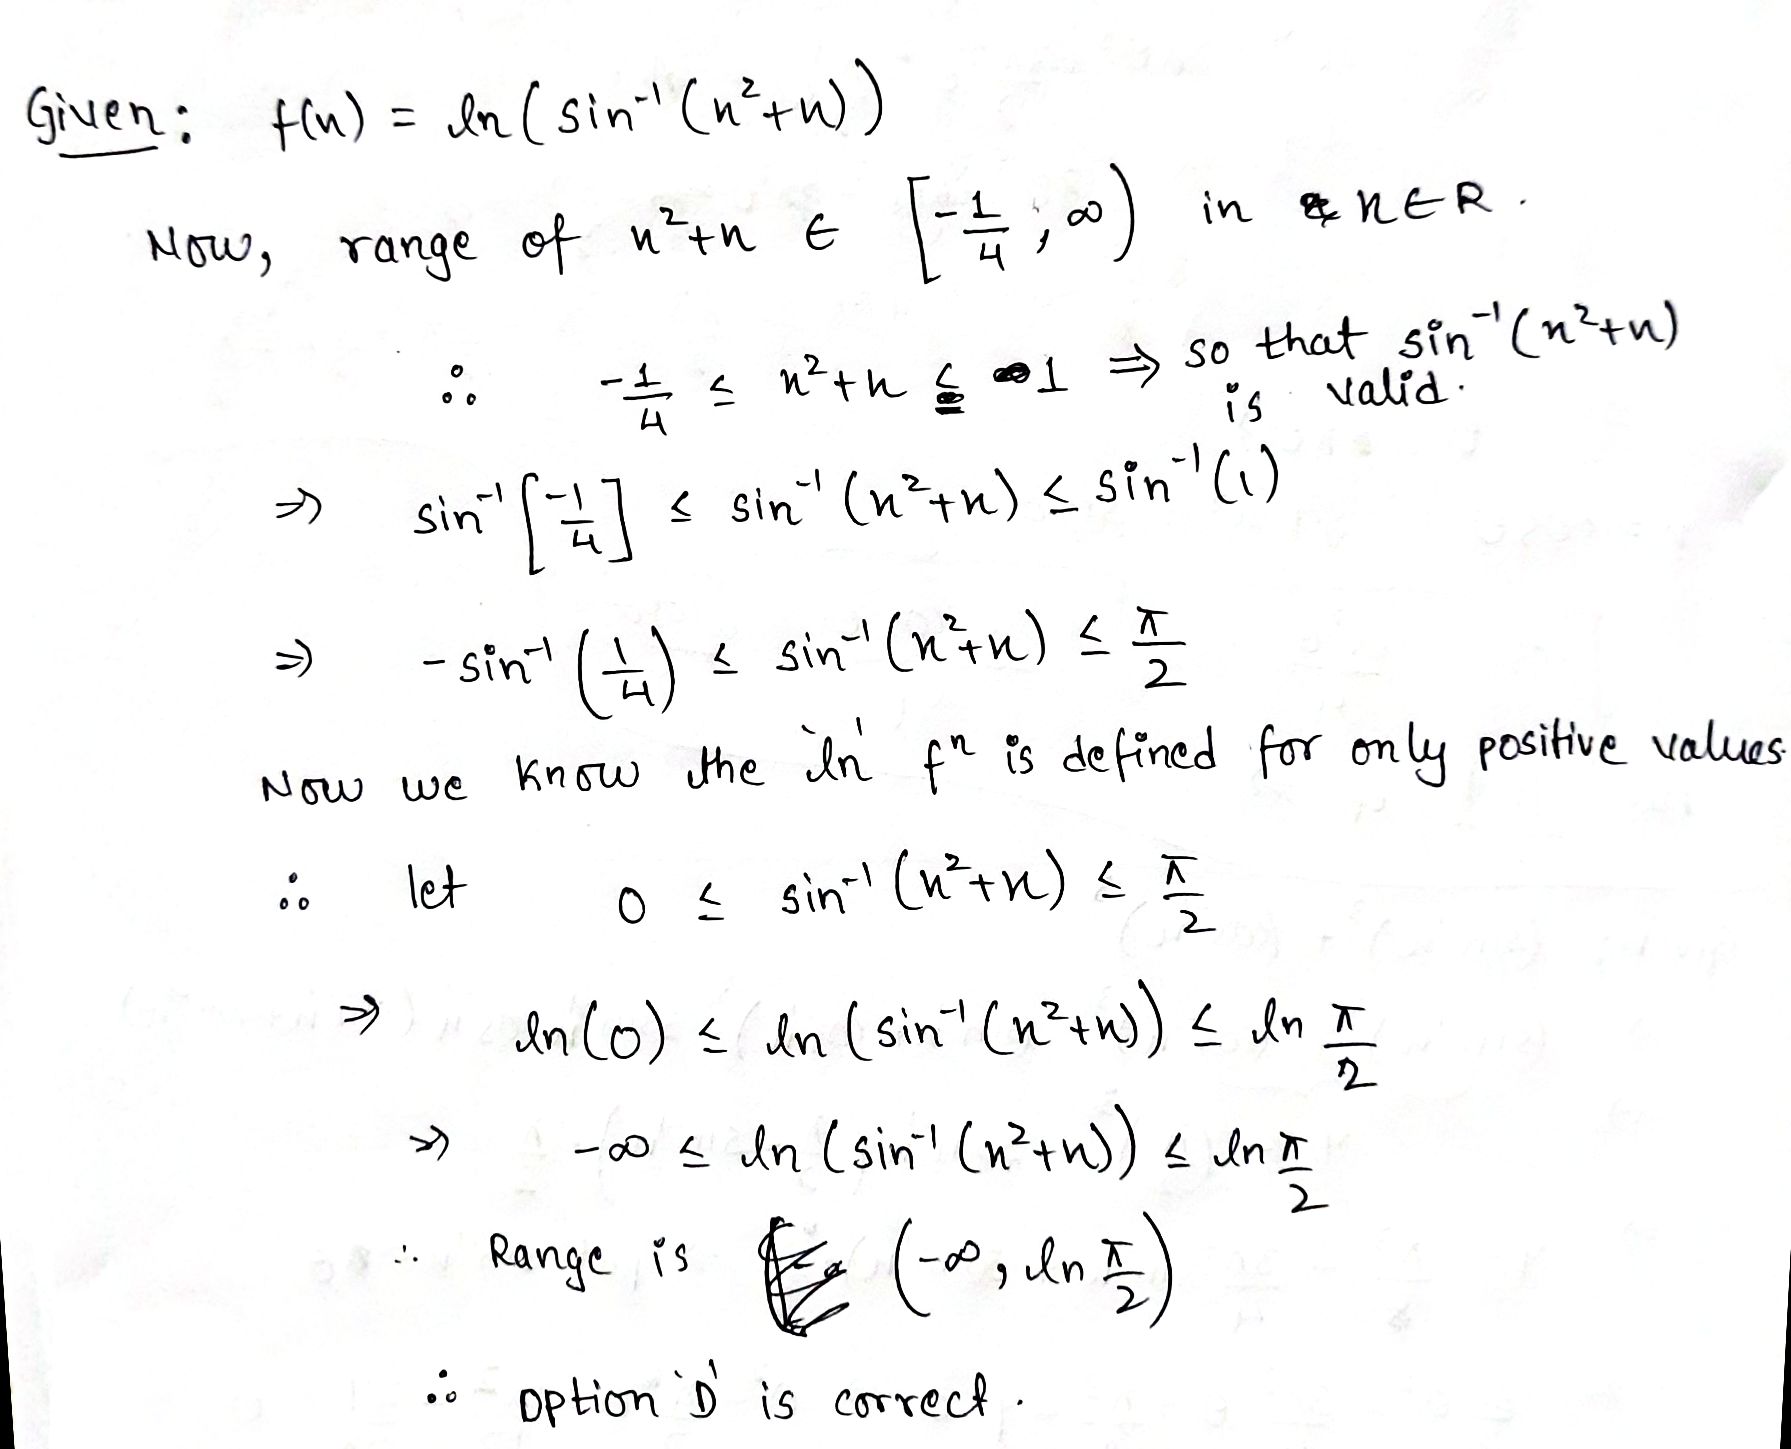 Given: f(n) = ln ( sin⁻¹ (n²+n) )
Now, range of n²+n ∈ [-1/4, ∞) in n∈R.
∴ -1/4 ≤ n²+n ≤ 1 ⇒ so that sin⁻¹(n²+n)
is valid.
⇒ sin⁻¹ [-1/4] ≤ sin⁻¹ (n²+n) ≤ sin⁻¹ (1)
⇒ - sin⁻¹ (1/4) ≤ sin⁻¹ (n²+n) ≤ π/2
Now we know the 'ln' fⁿ is defined for only positive values.
∴ let 0 ≤ sin⁻¹ (n²+n) ≤ π/2
⇒ ln(0) ≤ ln (sin⁻¹ (n²+n)) ≤ ln π/2
⇒ -∞ ≤ ln (sin⁻¹ (n²+n)) ≤ ln π/2
∴ Range is (-∞, ln π/2)
∴ option 'D' is correct.